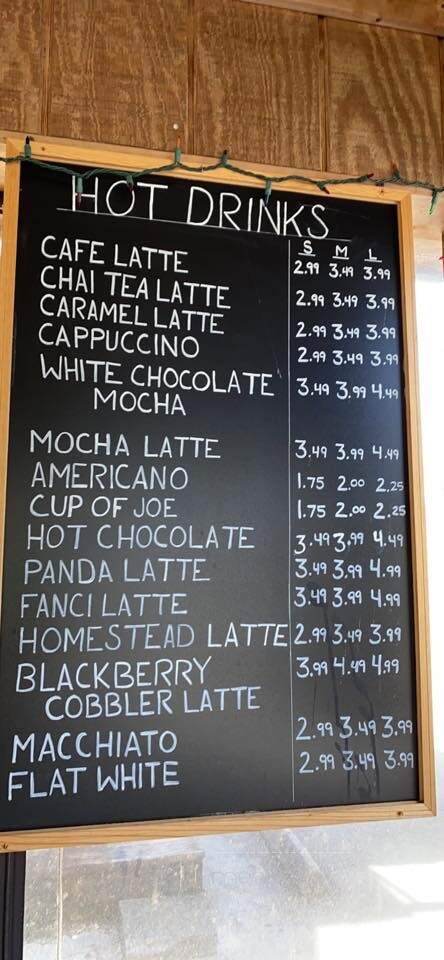 HOT DRINKS
S M L
CAFE LATTE 2.99 3.49 3.99
CHAI TEA LATTE 2.99 3.49 3.99
CARAMEL LATTE 2.99 3.49 3.99
CAPPUCCINO 2.99 3.49 3.99
WHITE CHOCOLATE 3.49 3.99 4.49
MOCHA
MOCHA LATTE 3.49 3.99 4.49
AMERICANO 1.75 2.00 2.25
CUP OF JOE 1.75 2.00 2.25
HOT CHOCOLATE 3.49 3.99 4.49
PANDA LATTE 3.49 3.99 4.99
FANCI LATTE 3.49 3.99 4.99
HOMESTEAD LATTE 2.99 3.49 3.99
BLACKBERRY 3.99 4.49 4.99
COBBLER LATTE
MACCHIATO 2.99 3.49 3.99
FLAT WHITE 2.99 3.49 3.99